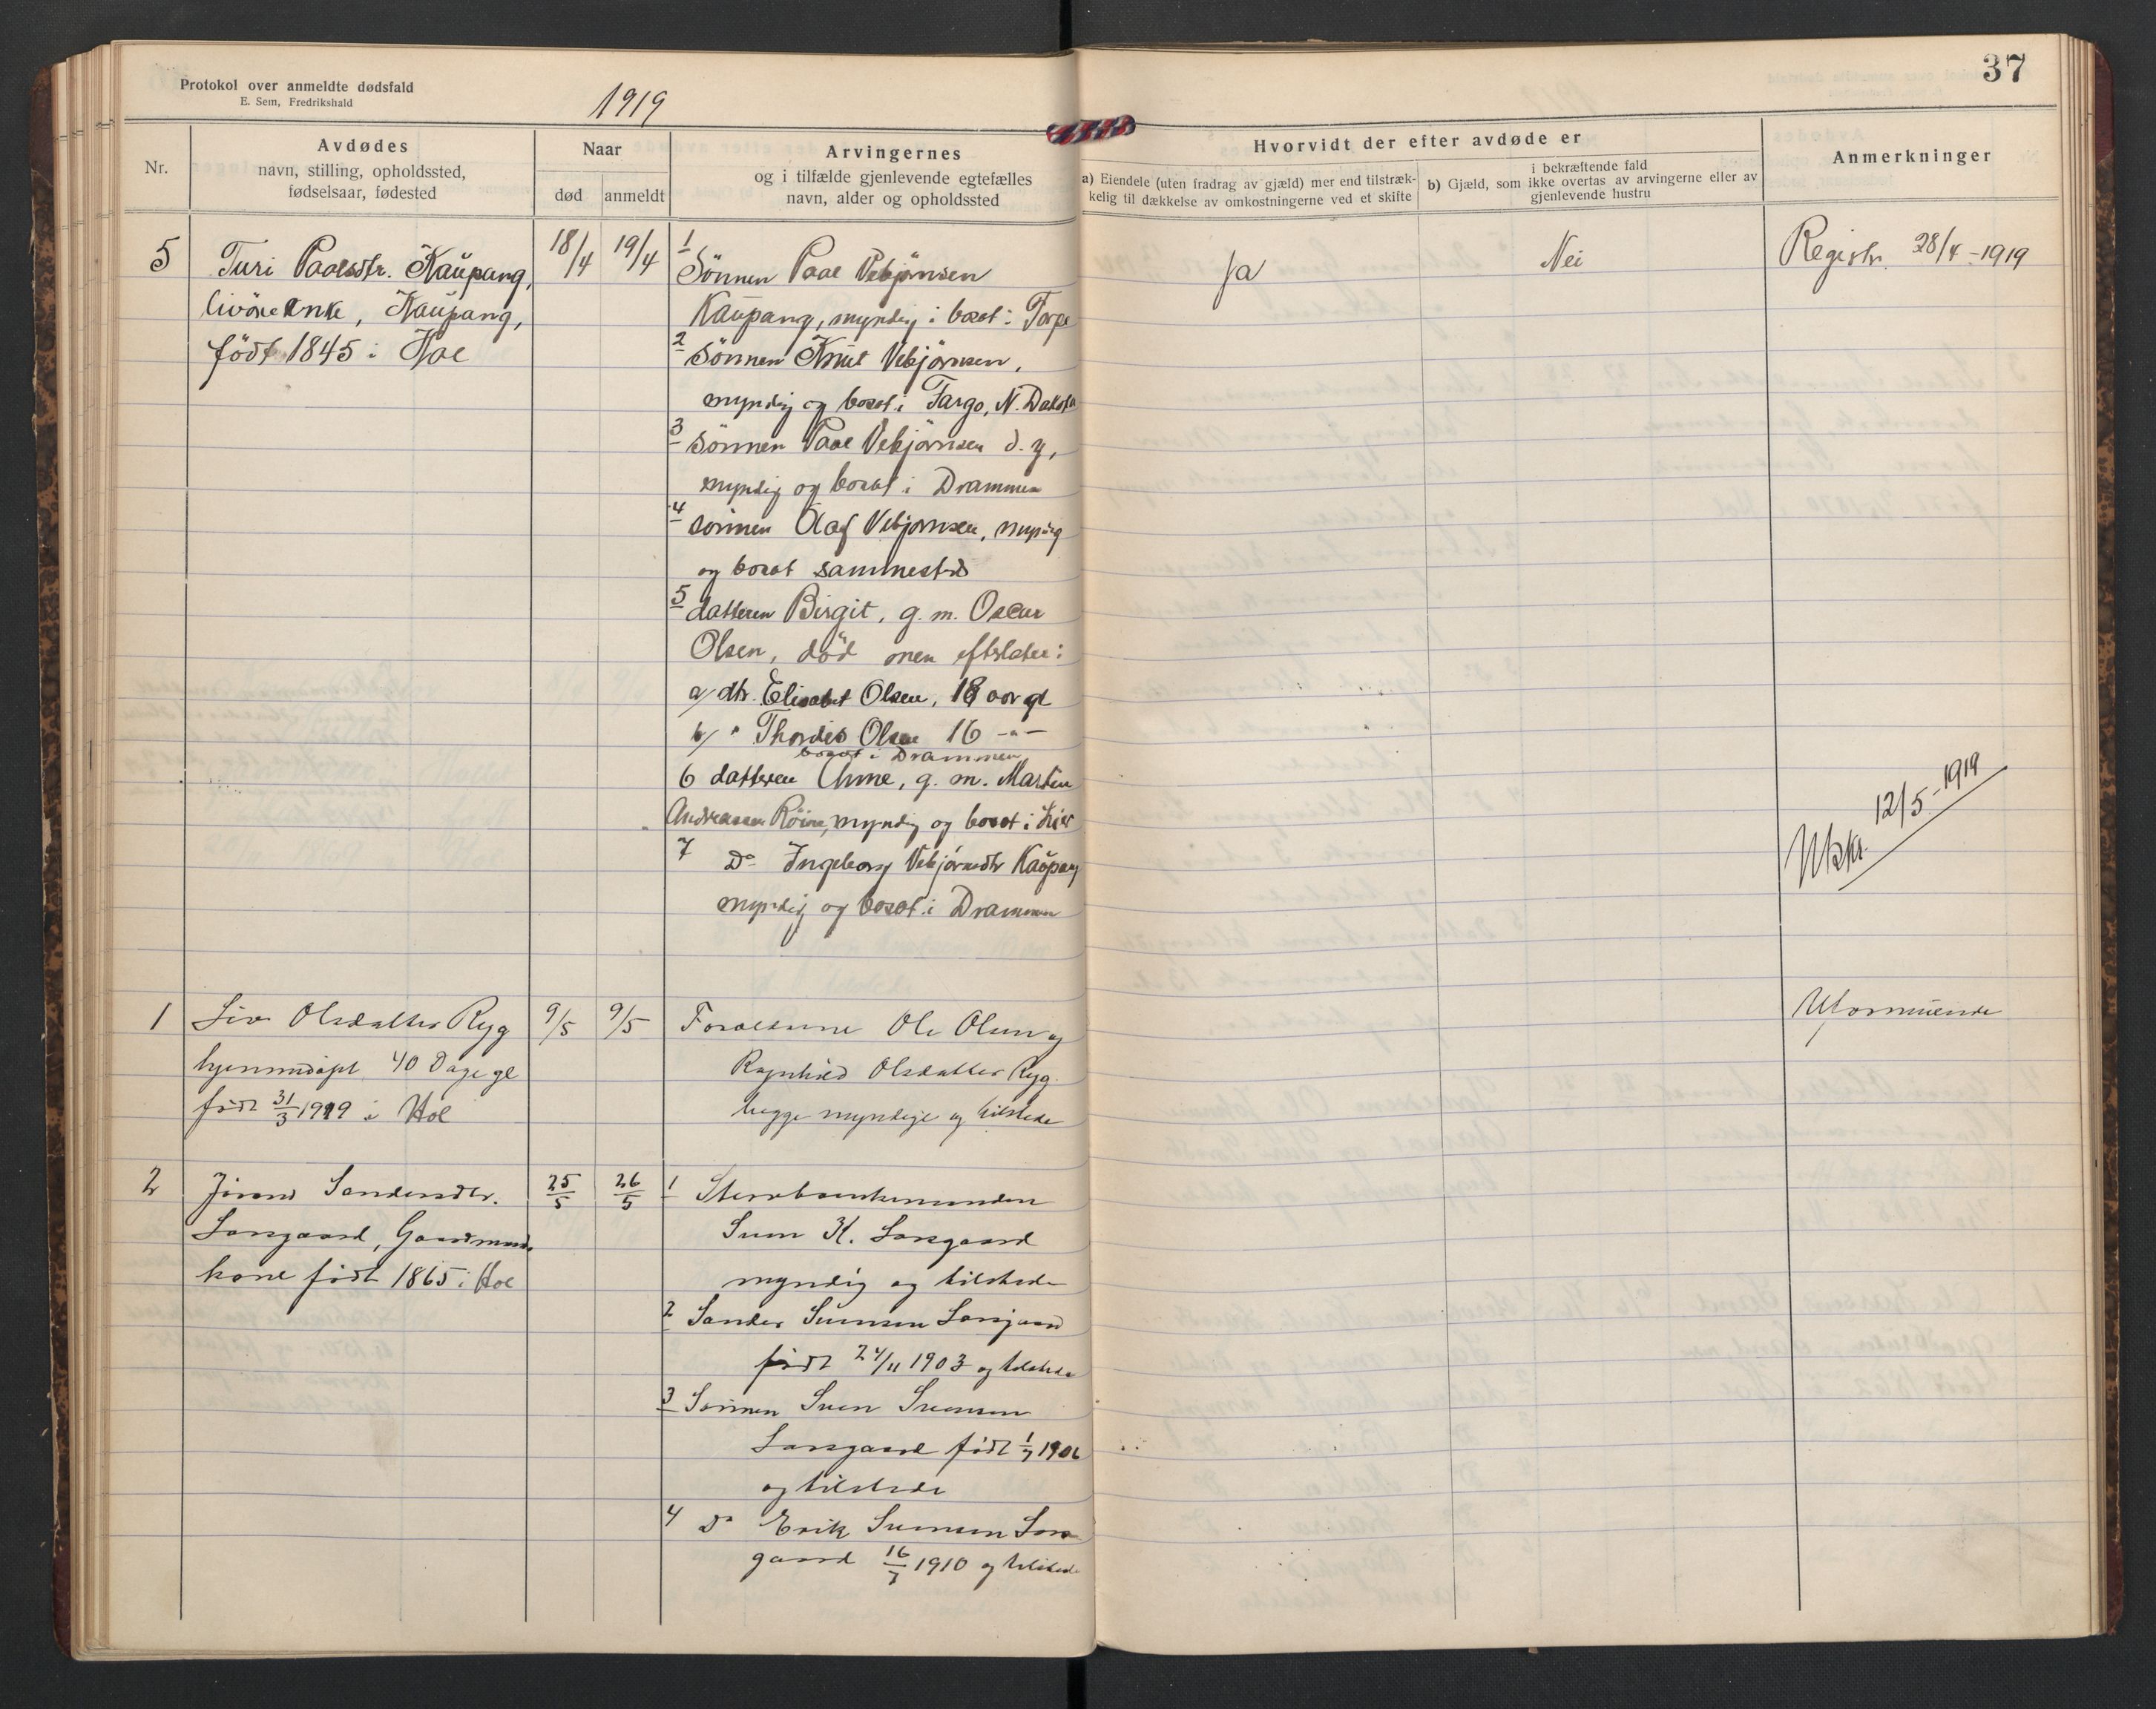 Protokol over anmeldte dødsfald
E. Sem, Fredrikshald
1919
37
Nr.
Avdødes
navn, stilling, opholdssted,
fødselsaar, fødested
Naar
død
anmeldt
Arvingernes
og i tilfælde gjenlevende egtefælles
navn, alder og opholdssted
Hvorvidt der efter avdøde er
a) Eiendele (uten fradrag av gjæld) mer end tilstræk-
kelig til dækkelse av omkostningerne ved et skifte
i bekræftende fald
b) Gjæld, som ikke overtas av arvingerne eller av
gjenlevende hustru
Anmerkninger
5
Turi Paalsdtr. Kaupang,
Enke, Kaupang,
født 1845 i Hol
18/4
19/4
1
Sønnen Paal Vebjørnsen
Kaupang, myndig i bosat i Torpe
2 sønnen Knut Vebjørnsen,
myndig og bosat i Fargo, N. Dakota
3 sønnen Paal Vebjørnsen d.y,
myndig og bosat i Drammen
4 sønnen Olaf Vebjørnsen, myndig
og bosat sammesteds
5 datteren Birgit, g. m. Oscar
Olsen, død men efterlater:
a/ dtr. Elisabet Olsen, 18 aar gl
b/ " Thordis Olsen 16 -"-
bosat i Drammen
6 datteren Anne, g. m. Martin
Andreassen Røine, myndig og bosat i Lier
7 Do Ingeborg Vebjørnsdtr Kaupang
myndig og bosat i Drammen
Ja
Nei
Registr. 28/4-1919
12/5-1919
1
Liv Olsdatter Ryg
hjemmedøpt 40 Dage gl
født 31/3 1919 i Hol
9/5
9/5
Forældrene Ole Olsen og
Ragnhild Olsdatter Ryg
begge myndige og tilstede
Uformuende
2
Jørand Sandersdtr.
Larsgaard, Gaardmands
kone født 1865 i Hol
25/5
26/5
1 Sterrboenkemanden
Sven K. Larsgaard
myndig og tilstede
2 Sander Svensen Larsgaard
født 24/11 1903 og tilstede
3 Sønnen Sven Svensen
Larsgaard født 1/7 1906
og tilstede
4 Do Erik Svensen Lars
gaard 16/7 1910 og tilstede